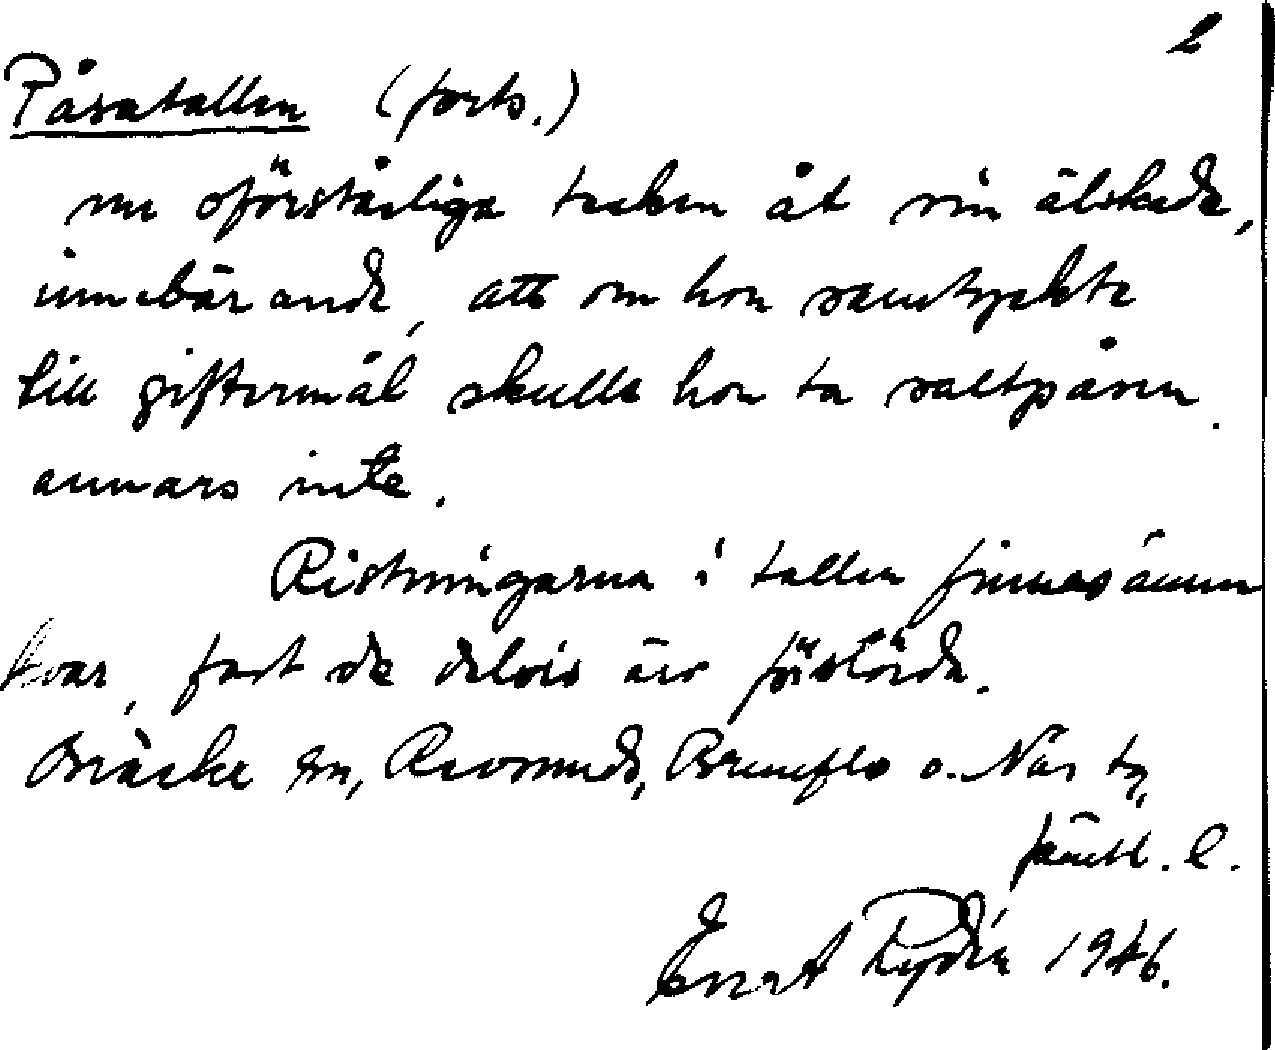 2
Påsatallen (forts.)
nu oförståeliga tecken åt sin älskade,
innebärande, att om hon samtyckte
till giftermål skulle hon ta saltpåsen.
annars inte.
Ristningarna i tallen finnas ännu
kvar, fast de delvis äro förstörda.
Bräcke sn, Revsunds, Brunflo o. Näs tg,
Jämtl. l.
Ernst Rydén 1946.